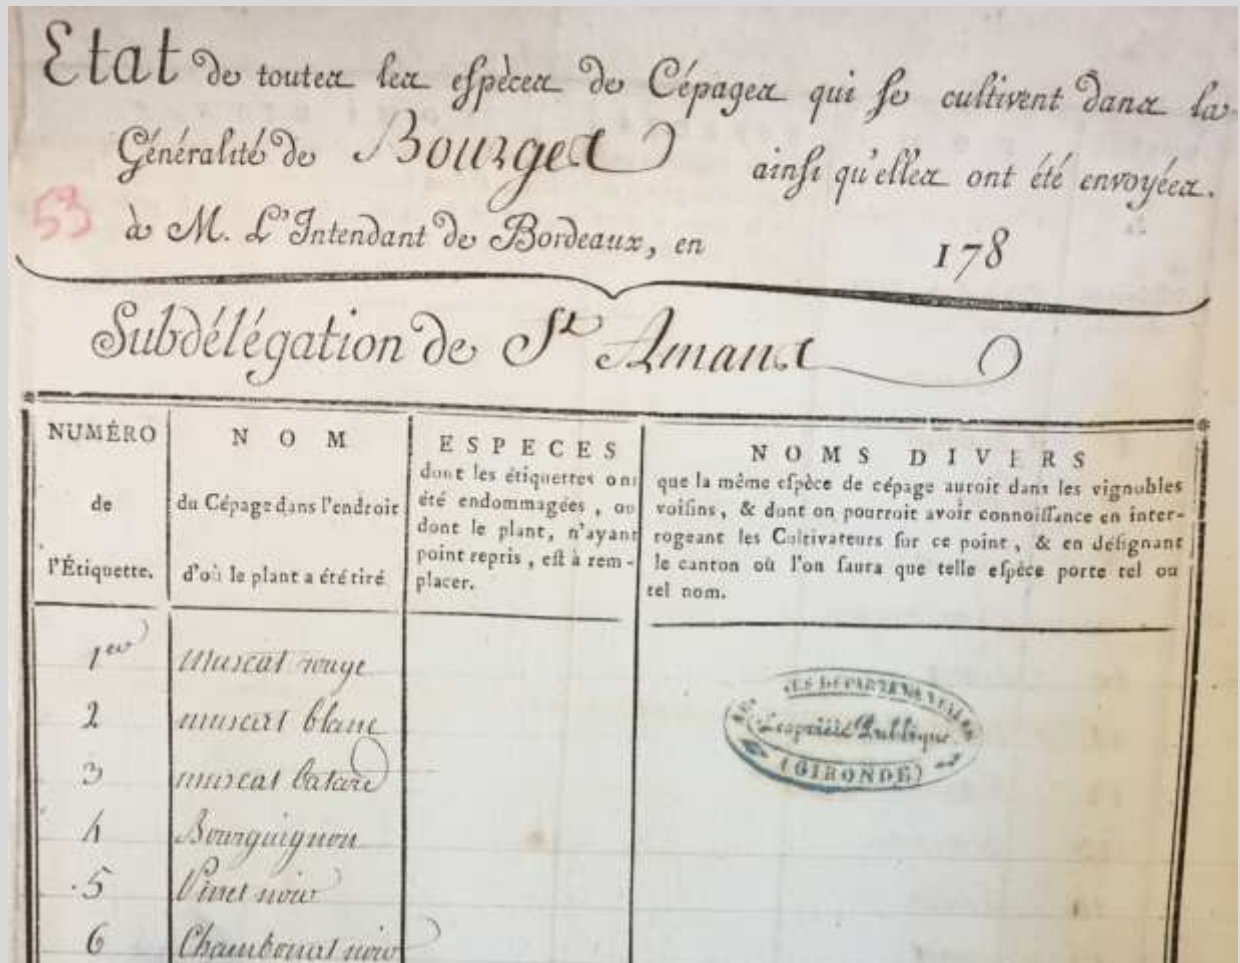 Etat de toutes les espèces de Cépages qui se cultivent dans la
Généralité de Bourges ainsi qu'elles ont été envoyées.
53
à M. L'Intendant de Bordeaux, en 178
Subdélégation de St Amand
NUMÉRO
de
l'Étiquette.
NOM
du Cépage dans l'endroit
d'où le plant a été tiré
ESPECES
dont les étiquettes ont
été endommagées, ou
dont le plant, n'ayant
point repris, est à rem-
placer.
NOMS DIVERS
que la même espèce de cépage auroit dans les vignobles
voisins, & dont on pourroit avoir connoissance en inter-
rogeant les Cultivateurs sur ce point, & en désignant
le canton où l'on saura que telle espèce porte tel ou
tel nom.
1er Muscat rouge
2 muscat blanc
3 muscat batard
4 Bourguignon
5 Pinet noir
6 Chambonat noir
DÉPARTEMENTALES
Propriété Publique
(GIRONDE)